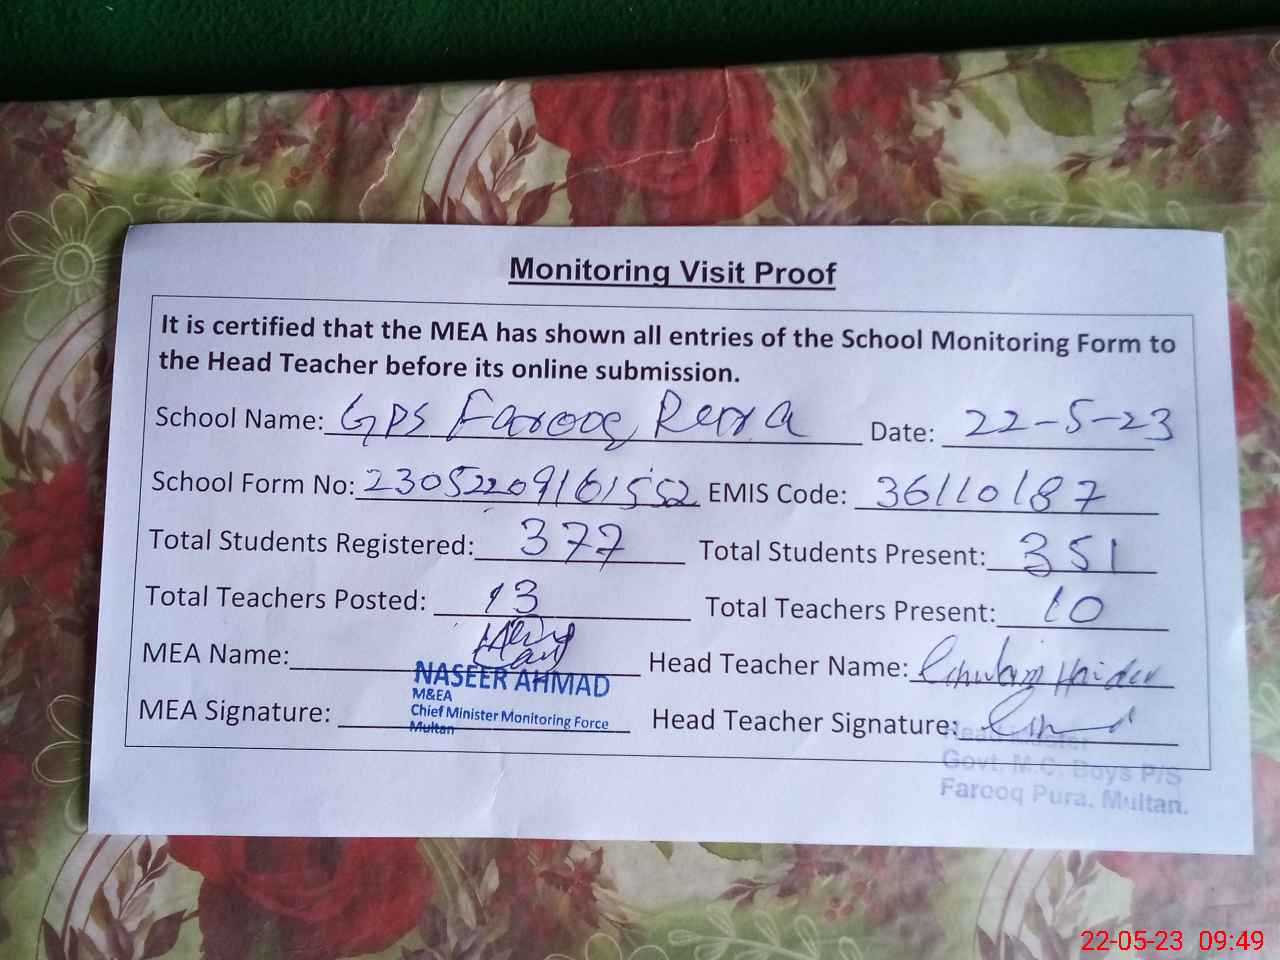 Monitoring Visit Proof
It is certified that the MEA has shown all entries of the School Monitoring Form to
the Head Teacher before its online submission.
School Name: GPS Farooq Date: 22-5-23
School Form No: 23052209161552 EMIS Code: 36110187
Total Students Registered: 377 Total Students Present: 351
Total Teachers Posted: 13 Total Teachers Present: 10
MEA Name: Head Teacher Name: Haider
NASEER AHMAD
M&EA
Chief Minister Monitoring Force
Multan
MEA Signature: Head Teacher Signature:
Head Master
Govt. M.C. Boys P/S
Farooq Pura, Multan.
22-05-23 09:49